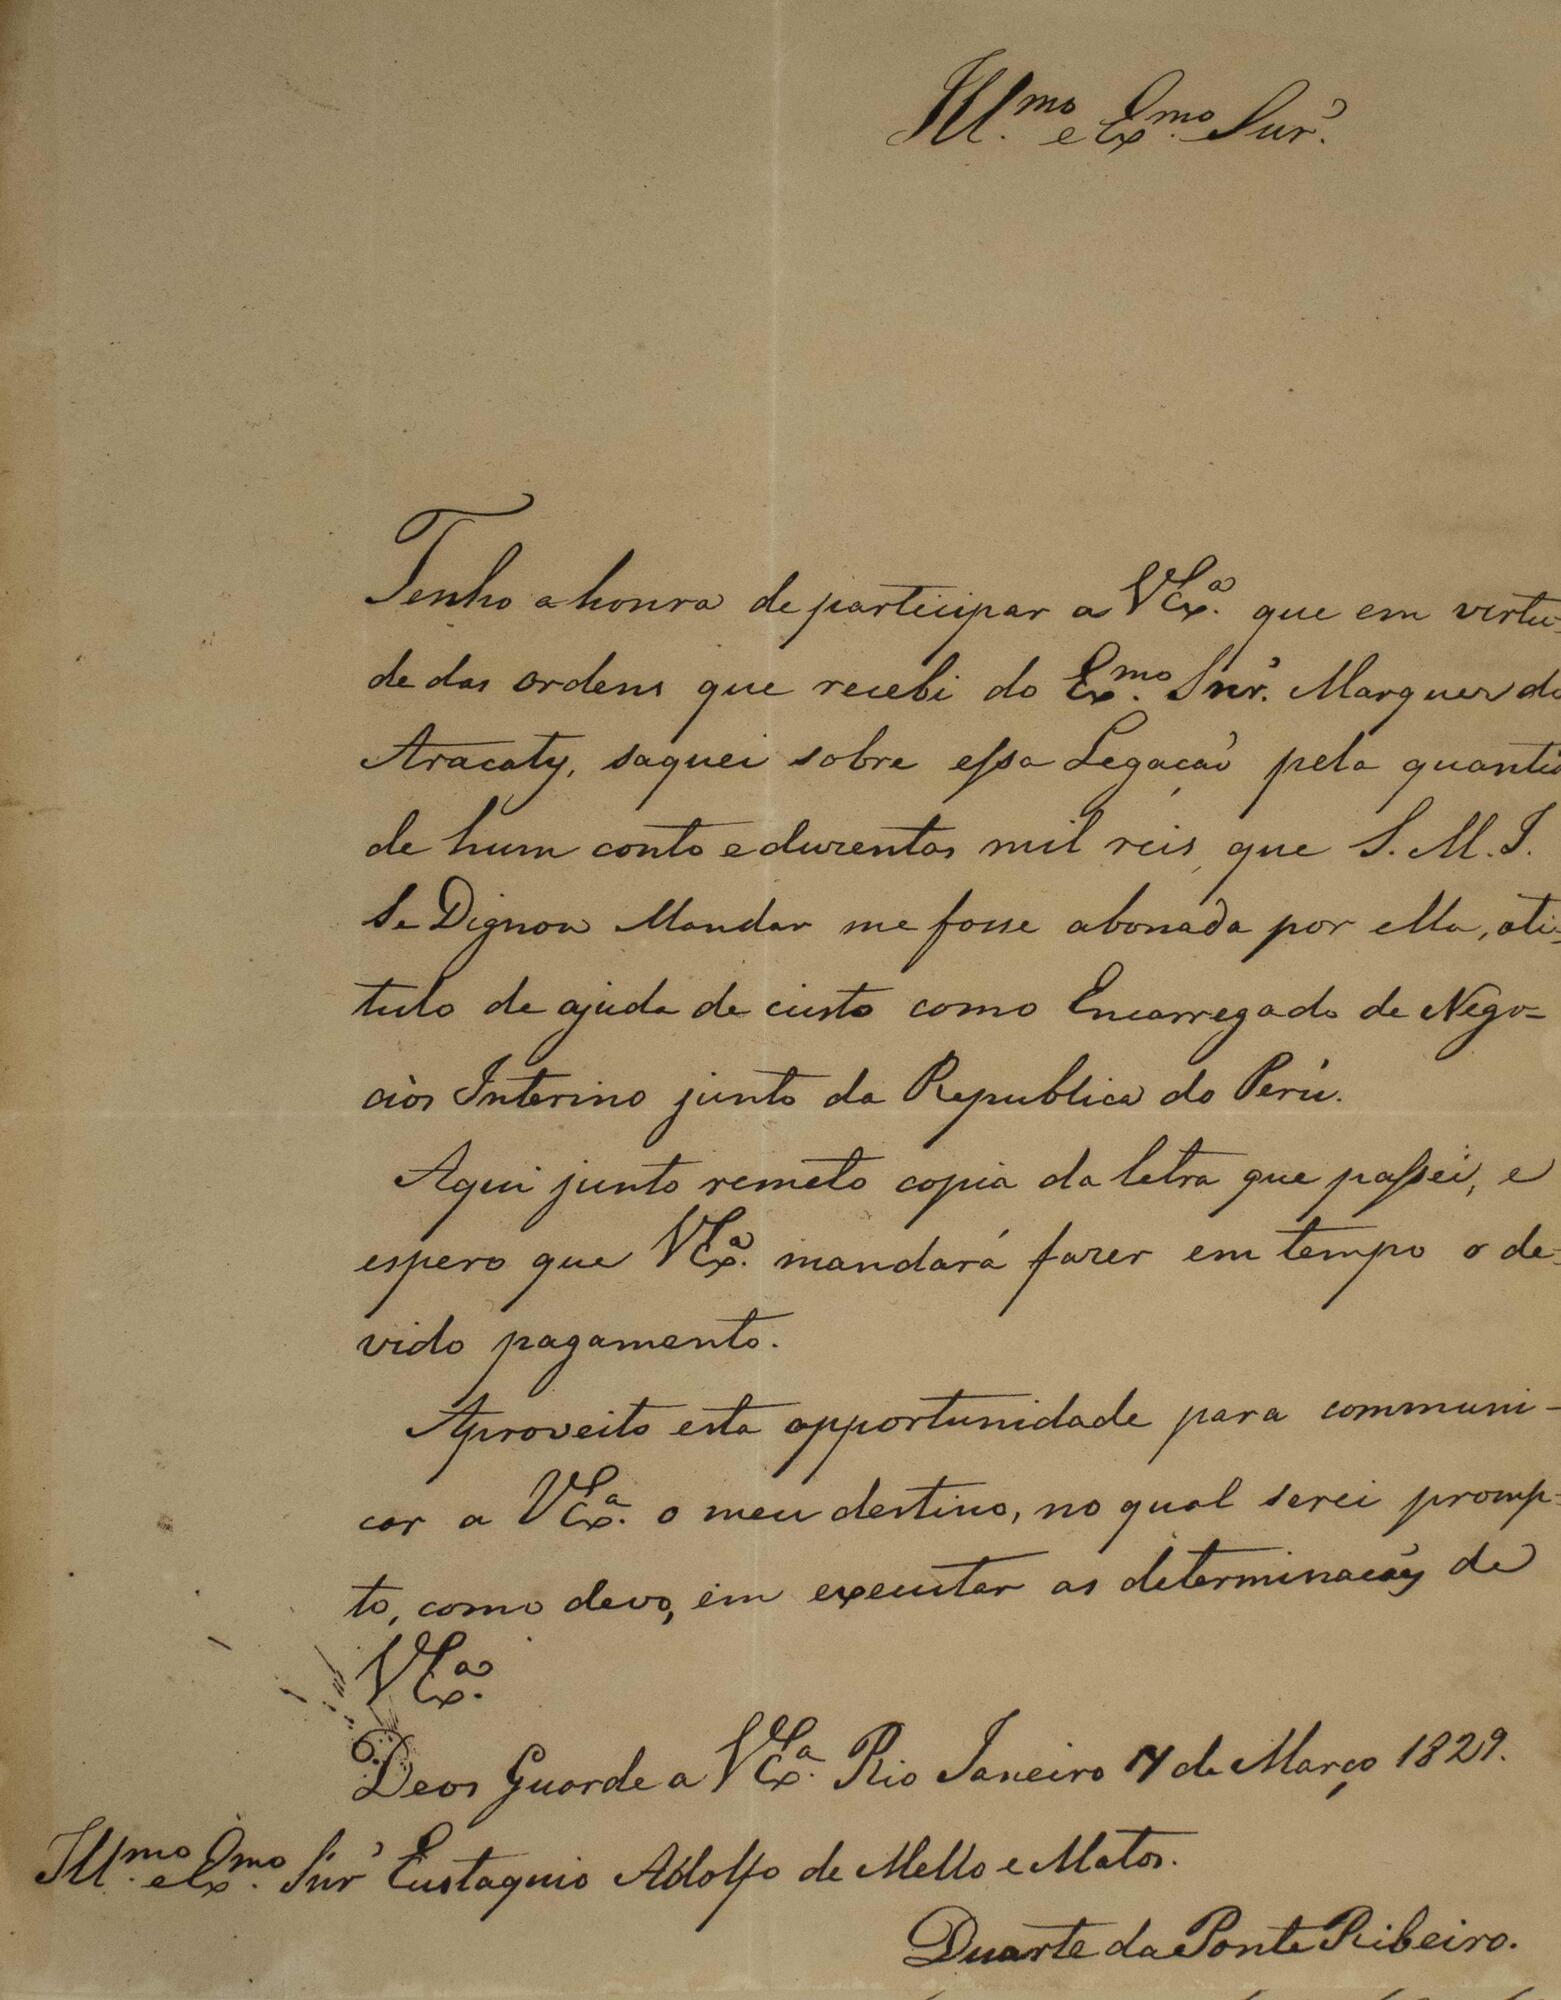 Ill.mo e Ex.mo Snr.
Tenho a honra de participar a V Ex.a que em virtu-
de das ordens que recebi do Ex.mo Snr. Marquez do
Aracaty, saquei sobre essa Legação pela quantia
de hum conto e duzentos mil reis, que S. M. I.
Se Dignou Mandar me fosse abonada por ella, ati-
tulo de ajuda de custo como Encarregado de Nego-
cios Interino junto da Republica do Perú.
Aqui junto remeto copia da letra que passei, e
espero que V Ex.a mandará fazer em tempo o de-
vido pagamento.
Aproveito esta opportunidade para communi-
car a V Ex.a o meu destino, no qual serei promp-
to, como devo, em executar as determinações de
V Ex.a
Deos Guarde a V Ex.a Rio Janeiro 7 de Março 1829.
Ill.mo e Ex.mo Snr Eustaquio Adolfo de Mello e Matos.
Duarte da Ponte Ribeiro.